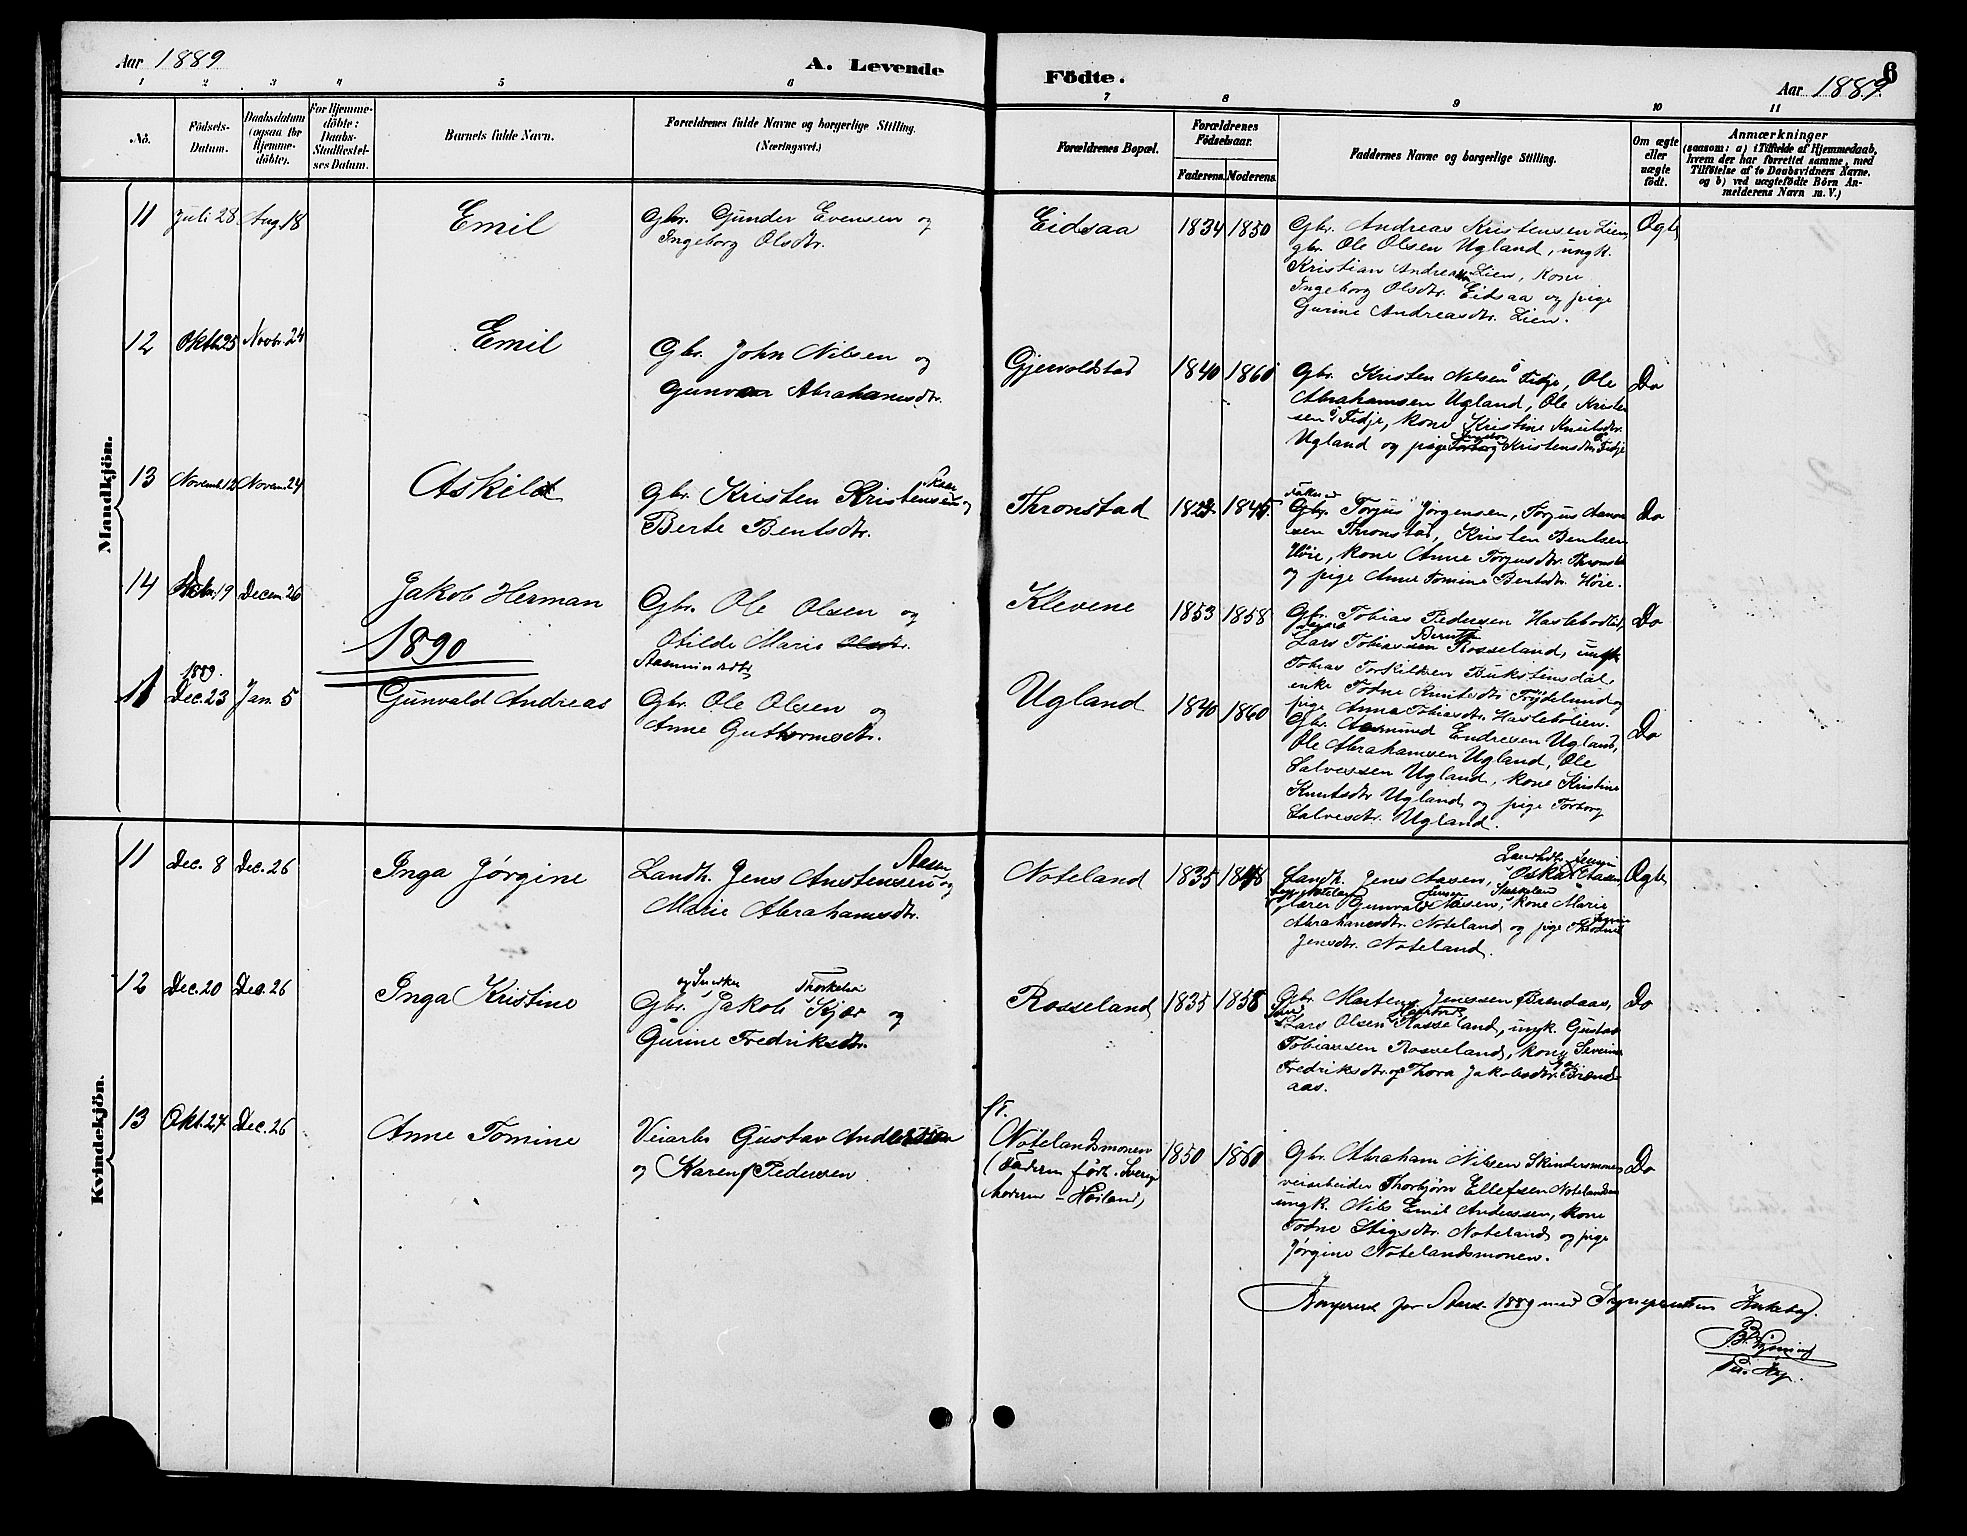 Aar 1889
A. Levende
Födte.
6
Aar 1889.
1 2 3 4 5 6 7 8 9 10 11
No.
Födsels-
Datum.
Daabsdatum
(ogsaa for
Hjemme-
döbte).
For Hjemme-
döbte:
Daabs-
Stadfæstel-
ses Datum.
Barnets fulde Navn.
Forældrenes fulde Navne og borgerlige Stilling.
(Næringsvei.)
Forældrenes Bopæl.
Forældrenes
Födselsaar.
Faderens. Moderens.
Faddernes Navne og borgerlige Stilling.
Om ægte
eller
uægte
født.
Anmærkninger
(saasom: a) i Tilfælde af Hjemmedaab,
hvem der har forrettet samme, med
Tilföielse af to Daabsvidners Navne.
og b) ved uægtefödte Börn An-
melderens Navn m. V.)
Mandkjön.
11 Juli 28. Aug 18
Emil
Gbr. Gunder Evensen og
Ingeborg Olsdtr.
Eidsaa
1834 1850
Gbr. Andreas Kristensen Lien,
gbr. Ole Olsen Ugland, ungk.
Kristian Andreassen Lien, kone
Ingeborg Olsdtr. Eidsaa og pige
Gurine Andreasdtr. Lien.
Ægte
12 Okt. 25 Novbr. 24
Emil
Gbr. John Nilsen og
Gunvor Abrahamsdtr.
Gjervoldstad
1840 1860
Gbr. Kristen Nilsen Fidje, Ole
Abrahamsen Ugland, Ole Kristen
sen Fidje, kone Kristine Knutsdtr.
Ugland og pige Kristensdtr. Fidje
Do
13 Novemb. 12 Novem. 24
Askild
Gbr. Kristen Kristensen og
Berte Bentsdtr.
Thronstad
1845
Gbr. Torjus Jörgensen, Torjus Aanon
sen Thronstad, Kristen Bentsen
Höie, kone Anne Torjusdtr. Thronstad
og pige Anne Tomine Bentsdtr. Höie.
Do
14 19 Decem. 26
Jakob Herman
Gbr. Ole Olsen og
Otilde Marie Olsdtr.
Klevene
1853 1858
Gbr. Tobias Pedersen
Lars Tobiassen Rosseland, ungk
Tobias Torkildsen Bukstensdal,
enke Todne Knutsdtr. Frydelund og
pige Anna Tobiasdtr.
Do
1890
11
1889.
Dec. 23 Jan. 5
Gunvald Andreas
Gbr. Ole Olsen og
Anne Guttormsdtr.
Ugland
1840 1860
Gbr. Aasmund Endresen Ugland,
Ole Abrahamsen Ugland, Ole
Salvessen Ugland, kone Kristine
Knutsdtr Ugland og pige Torborg
Salvesdtr. Ugland.
Do
Kvindekjön.
11 Dec. 8 Dec. 26
Inga Jørgine
Aasen
Landh. Jens Anstensen og
Marie Abrahamsdtr.
Noteland
1835 1848
Landh. Jens Aasen, Oskar Aasen,
Gunvald Aasen, kone Marie
Abrahamsdtr. Noteland og pige
Jensdtr. Noteland.
Ægte
12 Dec. 20 Dec. 26
Inga Kristine
og Snedker Thorkelsen
Gbr. Jakob Kjær og
Gurine Fredriksdtr.
Rosseland
1835 1858
Gbr. Morten Jenssen Brendaas,
Lars Olsen Rosseland, ungk. Gustav
Tobiassen Rosseland, kone Severine
Fredriksdtr. og Thora Jakobsdtr. Brend-
aas.
Do
13 Okt. 27 Dec. 26
Anne Tomine
Veiarb. Gustav Anderson
og Karen Pedersen
Notelandsmonen
(Faderen født i Sverige
Moderen - Høiland)
1850 1860
Gbr. Abraham Nilsen Skindersmonen
veiarbeider Thorbjörn Ellefsen Notelandsm
ungk. Nils Emil Anderssen, kone
Todne Stigsdtr. Noteland og pige
Jørgine Notelandsmonen.
Do
for 1889 med